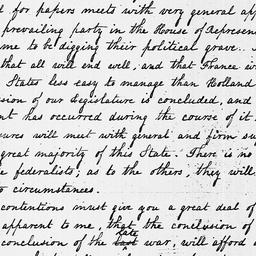 d for papers meets with very general app
prevailing party in the House of Represen
me to be digging their political grave.
that all will end well, and that France w
States less easy to manage than Holland
sion of our Legislature is concluded, and
nt has occurred during the course of it.
ures will meet with general and firm su
great majority of this State. There is no
e federalists; as to the others, they will
to circumstances.
contentions must give you a great deal of
apparent to me, that the conclusion of
late
conclusion of the last war, will afford